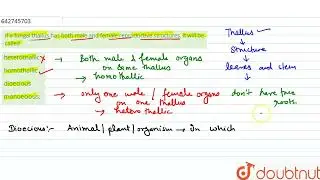 642745703
If a fungal thallus has both male and female reproductive structures, it will be
called
heterothallic
homothallic
dioecious
monoecious
→ Both male & female organs
on same thallus
→ homothallic
→ only one male / female organs
on one thallus
→ heterothallic
Thallus
↓
Structure
↓
leaves and stem
↓
don't have true
roots.
Dioecious:- Animal / plant / organism → In which
doubtnut